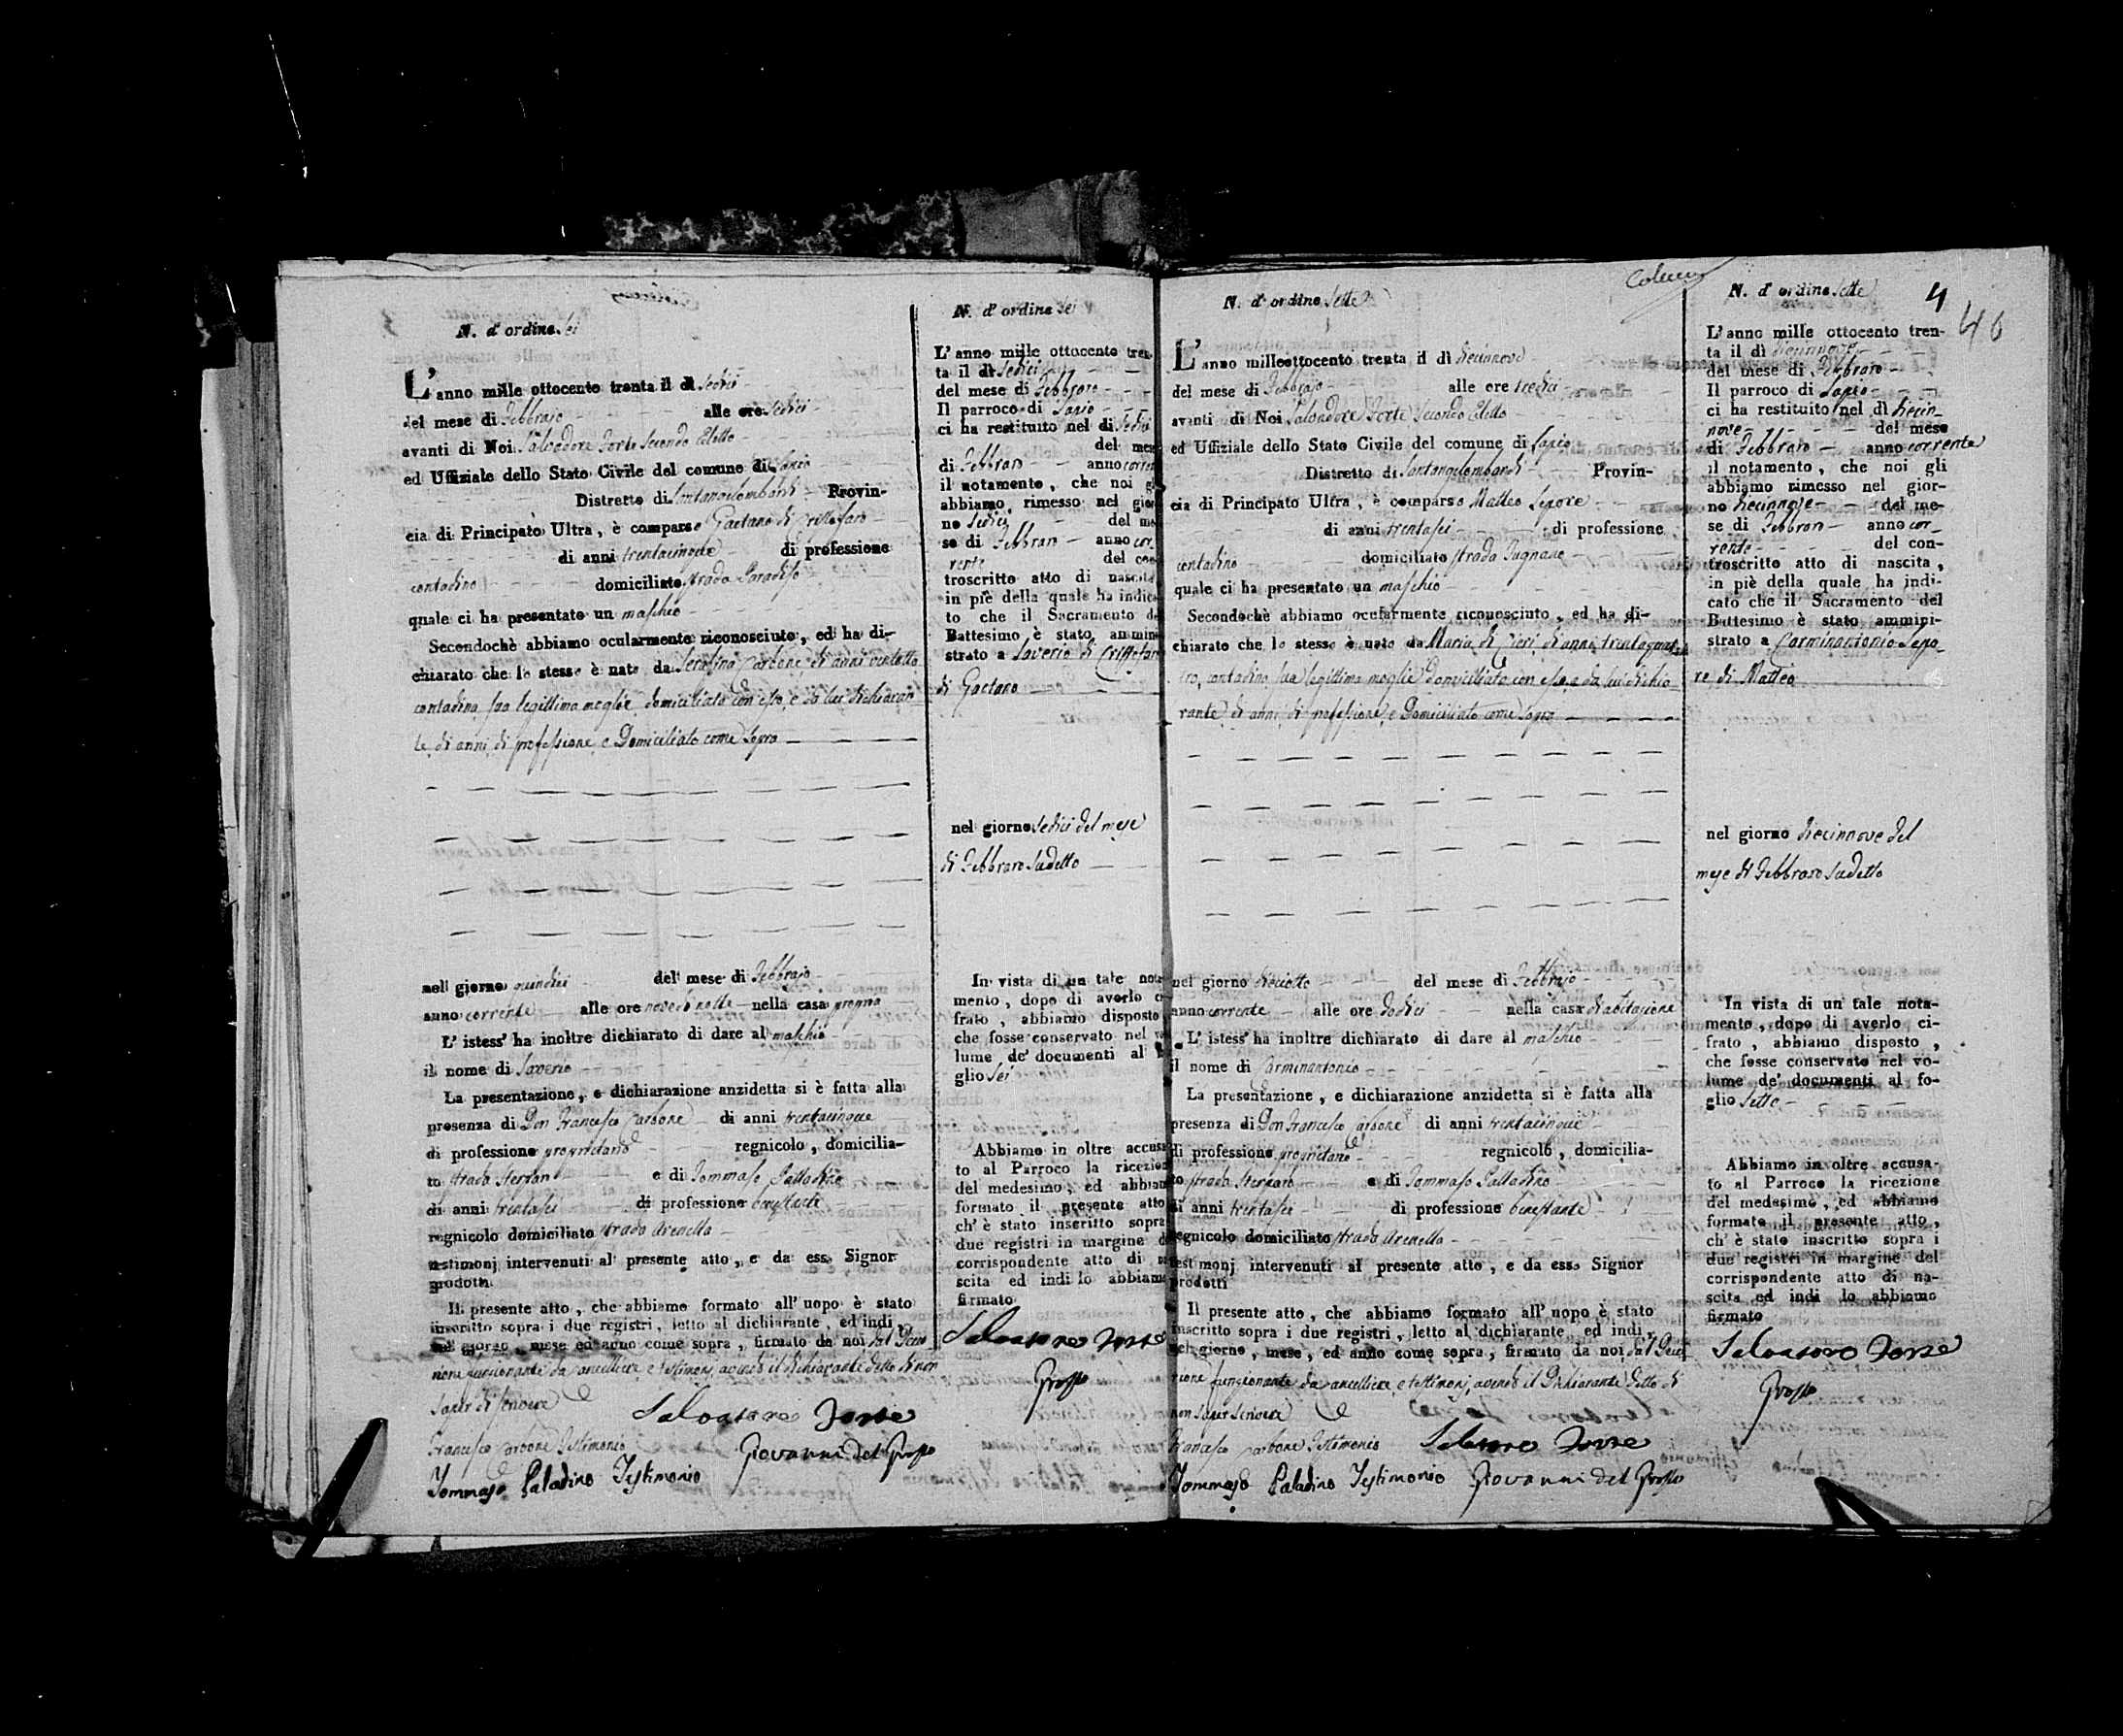 N. d' ordine Sei
L' anno mille ottocento trenta il dì Sedici
del mese di Febbrajo alle ore Sedici
avanti di Noi Salvadore Forte Secondo Eletto
ed Uffiziale dello Stato Civile del comune di Lapio
Distretto di Santangelombardi Provin-
cia di Principato Ultra, è comparso Gaetano di
di anni trentacinque di professione
contadino domiciliato strada Paradiso
quale ci ha presentato un maschio
Secondochè abbiamo ocularmente riconosciuto, ed ha di-
chiarato che lo stesso è nato da Serafina Carbone di anni ventotto
contadina sua legittima moglie domiciliata con esso, e da lui dichiaran
te di anni, di professione, e Domiciliato come sopra
nel giorno quindici del mese di Febbrajo
anno corrente alle ore nove di notte nella casa propria
L' istess' ha inoltre dichiarato di dare al maschio
il nome di Saverio
La presentazione, e dichiarazione anzidetta si è fatta alla
presenza di Don Francesco Carbone di anni trentacinque
di professione proprietario regnicolo, domicilia-
to strada e di Tommaso Palladino
di anni trentasei di professione benestante
regnicolo domiciliato strada Arenella
testimonj intervenuti al presente atto, e da esso Signor
prodotti
Il presente atto, che abbiamo formato all' uopo è stato
inscritto sopra i due registri, letto al dichiarante, ed indi
nel giorno, mese ed anno come sopra, firmato da noi dal Decu
rione funzionante da Cancelliere, e testimonj avendo il dichiarante detto di non
saper di scrivere
Salvatore Forte
Francesco Carbone Testimonio
Giovanni del Grosso
Tommaso Paladino Testimonio
N. d' ordine Sei
L' anno mille ottocento tren
ta il dì Sedici
del mese di Febbraro
Il parroco di Lapio
ci ha restituito nel di Sedici
del mese
di Febbraro anno corren
il notamento, che noi gl
abbiamo rimesso nel gior
no Sedici del me
se di Febbraro anno cor
rente del con
troscritto atto di nascita
in piè della quale ha indica
to che il Sacramento de
Battesimo è stato ammini
strato a Saverio di
di Gaetano
nel giorno sedici del mese
di Febbraro sudetto
In vista di un tale nota
mento, dopo di averlo ci
frato, abbiamo disposto
che fosse conservato nel vo
lume de' documenti al fo
glio Sei
Abbiamo in oltre accusa
to al Parroco la ricezion
del medesimo, ed abbiam
formato il presente atto
ch' è stato inscritto sopra
due registri in margine d
corrispondente atto di na
scita ed indi lo abbiamo
firmato
Salvatore Forte
Grosso
N. d' ordine Sette
L' anno milleottocento trenta il dì diecinnove
del mese di Febbrajo alle ore tredici
avanti di Noi Salvadore Forte Secondo Eletto
ed Uffiziale dello Stato Civile del comune di Lapio
Distretto di Santangelombardi Provin-
cia di Principato Ultra, è comparso Matteo Lepore
di anni trentasei di professione
contadino domiciliato strada
quale ci ha presentato un maschio
Secondochè abbiamo ocularmente riconosciuto, ed ha di-
chiarato che lo stesso è nato da Maria di Cieri di anni trentaquat
tro, contadina sua legittima moglie domiciliata con esso, e da lui dichia
rante di anni, di professione, e Domiciliato come sopra
nel giorno dieciotto del mese di Febbrajo
anno corrente alle ore dodici nella casa di abitazione
L' istess' ha inoltre dichiarato di dare al maschio
il nome di Carminantonio
La presentazione, e dichiarazione anzidetta si è fatta alla
presenza di Don Francesco Carbone di anni trentacinque
di professione proprietario regnicolo, domicilia-
to strada e di Tommaso Palladino
di anni trentasei di professione benestante
regnicolo domiciliato strada Arenella
testimonj intervenuti al presente atto, e da esso Signor
prodotti
Il presente atto, che abbiamo formato all' uopo è stato
inscritto sopra i due registri, letto al dichiarante, ed indi
nel giorno, mese, ed anno come sopra, firmato da noi dal Decu
rione funzionante da Cancelliere, e testimonj, avendo il Dichiarante detto di
non saper scrivere
Francesco Carbone Testimonio
Salvatore Forte
Tommaso Paladino Testimonio
Giovanni del Grosso
N. d' ordine Sette
4
46
L' anno mille ottocento tren-
ta il dì diecinnove
del mese di Febbraro
Il parroco di Lapio
ci ha restituito nel dì diecin_
nove del mese
di Febbraro anno corrente
il notamento, che noi gli
abbiamo rimesso nel gior-
no diecinnove del me-
se di Febbraro anno cor_
rente del con-
troscritto atto di nascita,
in piè della quale ha indi-
cato che il Sacramento del
Battesimo è stato ammini-
strato a Carminantonio Lepo_
re di Matteo
nel giorno diecinnove del
mese di Febbraro sudetto
In vista di un tale nota-
mento, dopo di averlo ci-
frato, abbiamo disposto,
che fosse conservato nel vo-
lume de' documenti al fo-
glio Sette
Abbiamo in oltre accusa-
to al Parroco la ricezione
del medesimo, ed abbiamo
formato il presente atto,
ch' è stato inscritto sopra i
due registri in margine del
corrispondente atto di na-
scita ed indi lo abbiamo
firmato
Salvatore Forte
Grosso